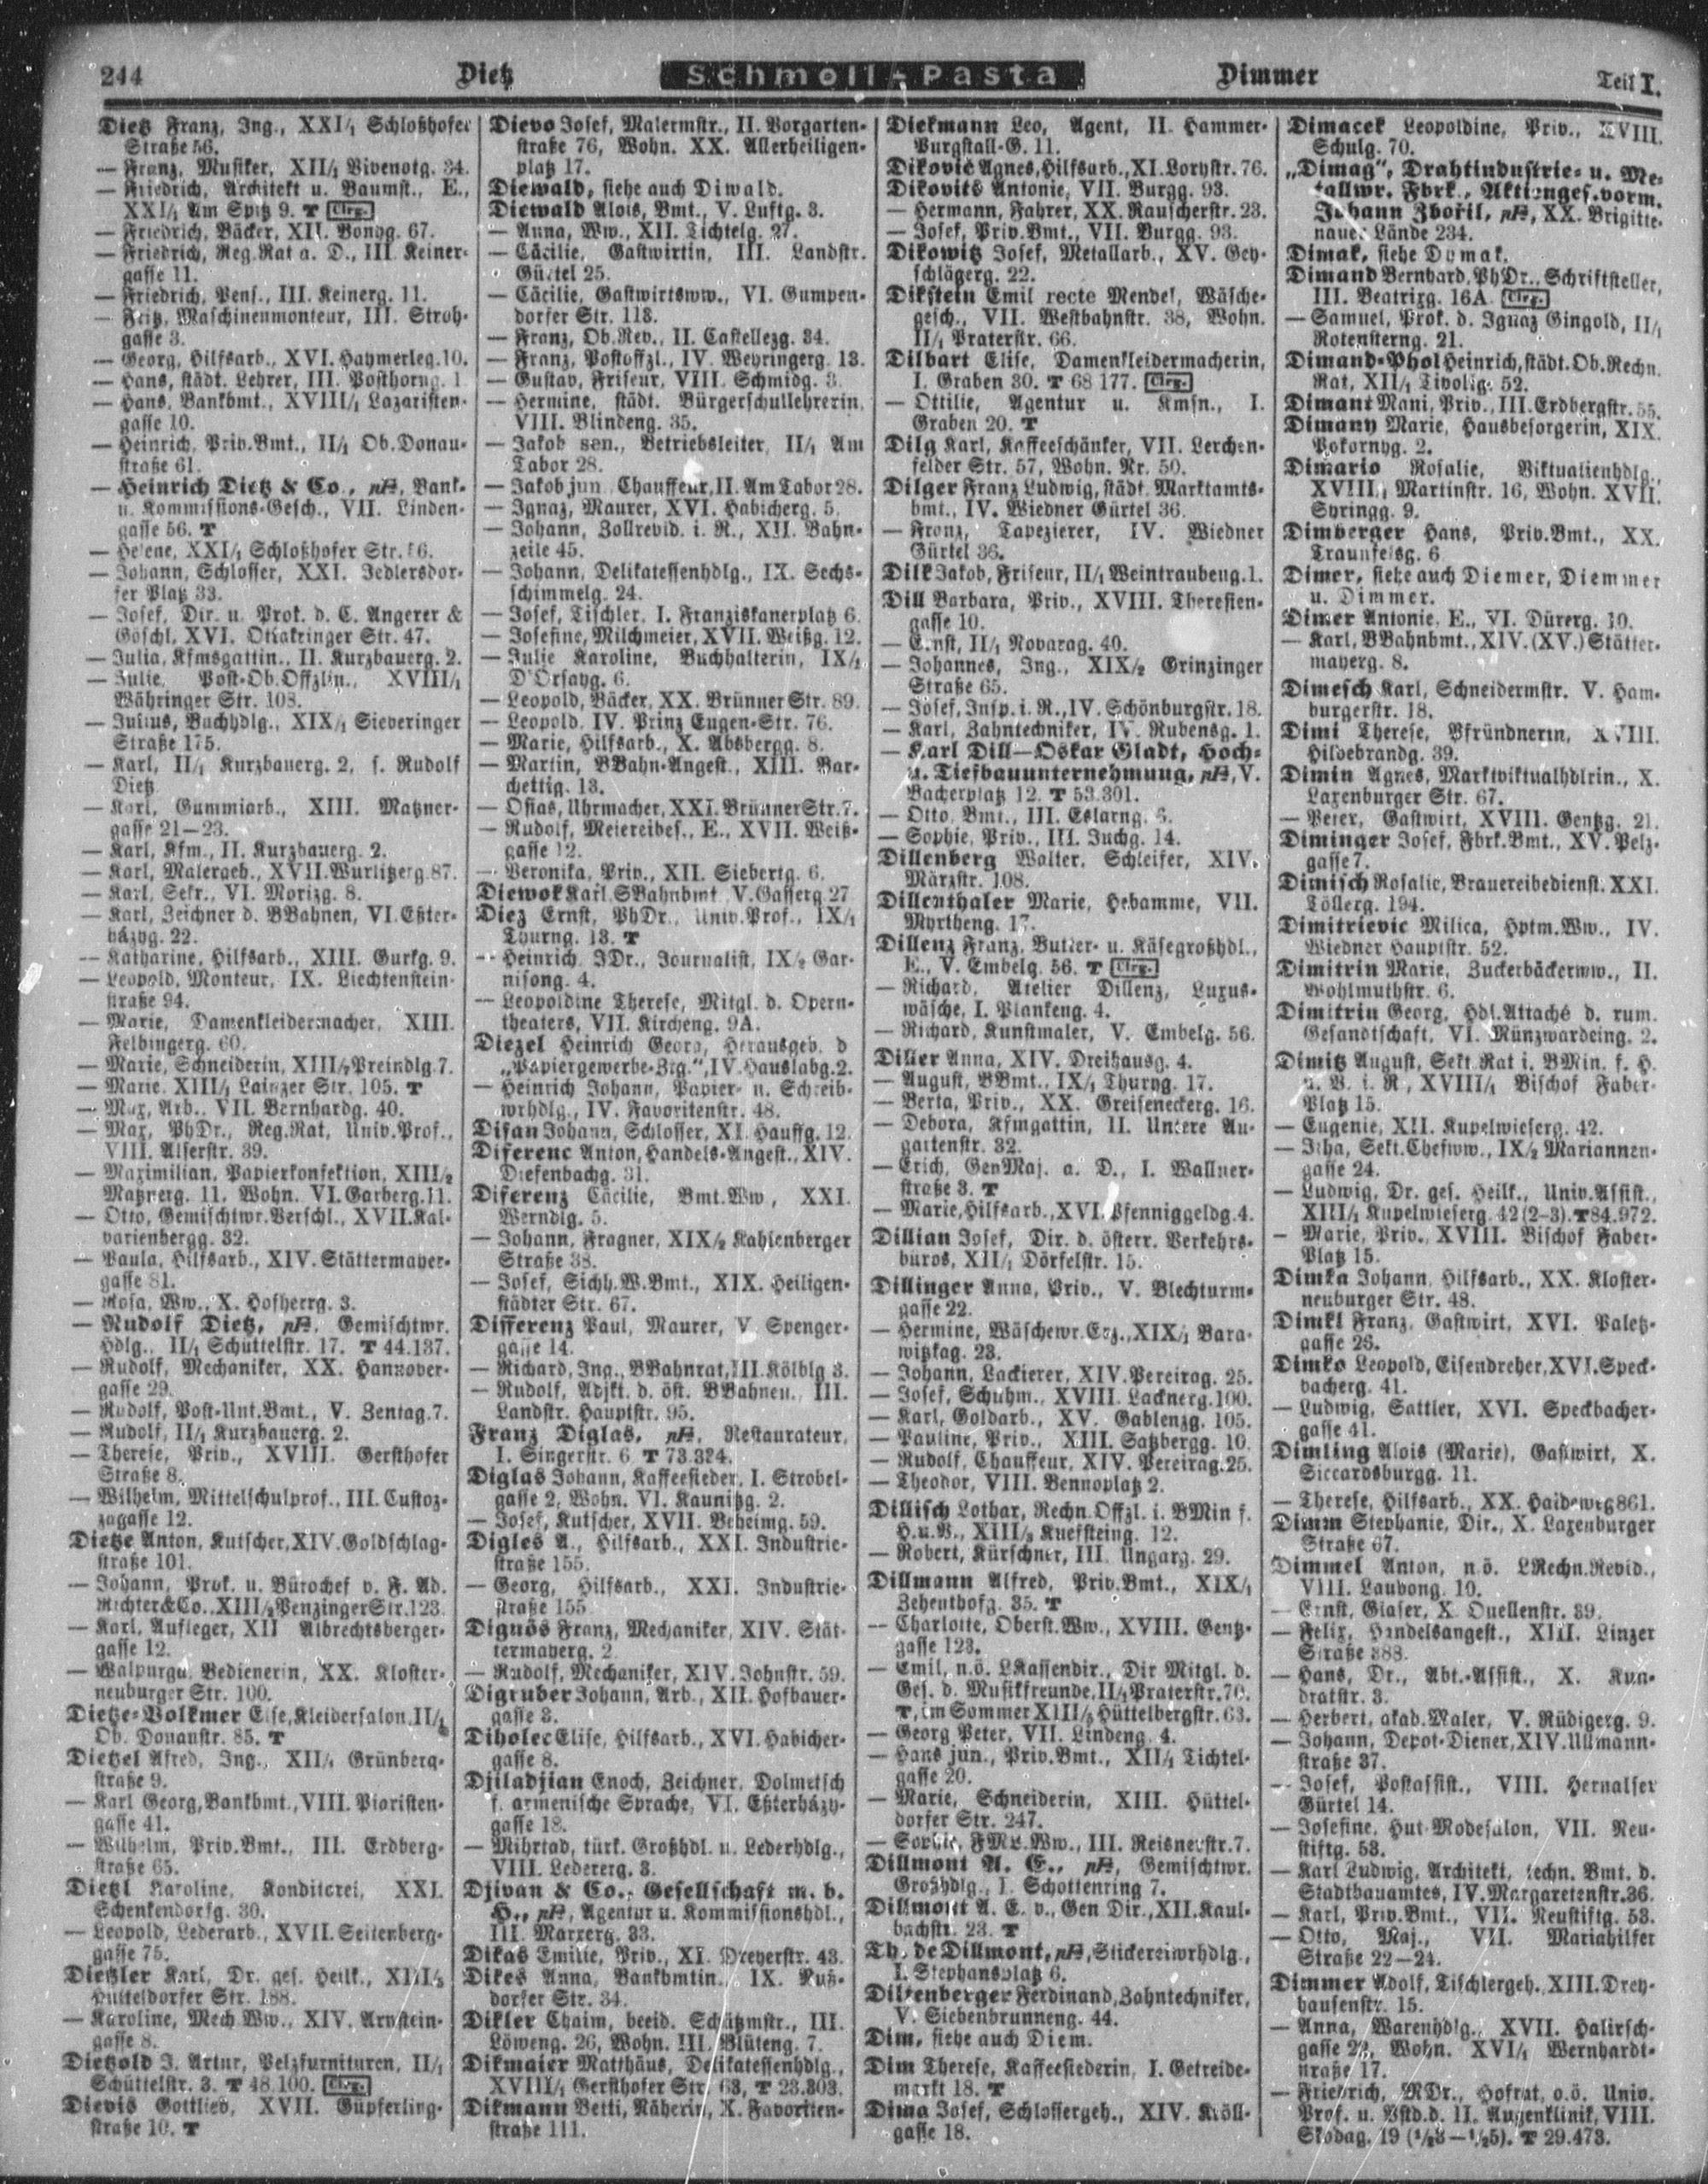 244 Dietz Schmoll-Pasta Dimmer Teil I.
Dietz Franz, Ing., XXI/1 Schloßhofer
Straße 56.
— Franz, Musiker, XII/1 Vivenotg. 34.
— Friedrich, Architekt u. Baumst., E.,
XXI/1 Am Spitz 9. T Clrg.
— Friedrich, Bäcker, XII. Bonyg. 67.
— Friedrich, Reg.Rat a. D., III. Keiner-
gasse 11.
— Friedrich, Pens., III. Keinerg. 11.
— Fritz, Maschinenmonteur, III. Stroh-
gasse 3.
— Georg, Hilfsarb., XVI. Haymerleg. 10.
— Hans, städt. Lehrer, III. Posthorng. 1
— Hans, Bankbmt., XVIII/1 Lazaristen-
gasse 10.
— Heinrich, Priv.Bmt., II/1 Ob. Donau-
straße 61.
— Heinrich Dietz & Co., pA, Bank-
u. Kommissions-Gesch., VII. Linden-
gasse 56. T
— Helene, XXI/1 Schloßhofer Str. 56.
— Johann, Schlosser, XXI. Jedlersdor-
fer Platz 33.
— Josef, Dir. u. Prok. d. C. Angerer &
Göschl, XVI. Ottakringer Str. 47.
— Julia, Kfmsgattin., II. Kurzbauerg. 2.
— Julie, Post-Ob.Offzlin., XVIII/1
Währinger Str. 108.
— Julius, Buchhdlg., XIX/1 Sieveringer
Straße 175.
— Karl, II/1 Kurzbauerg. 2, s. Rudolf
Dietz
— Karl, Gummiarb., XIII. Matzner-
gasse 21—23.
— Karl, Kfm., II. Kurzbauerg. 2.
— Karl, Malergeh., XVII. Wurlitzerg. 87.
— Karl, Sekr., VI. Morizg. 8.
— Karl, Zeichner d. BBahnen, VI. Eßter-
házyg. 22.
— Katharine, Hilfsarb., XIII. Gurkg. 9.
— Leopold, Monteur, IX. Liechtenstein-
straße 94.
— Marie, Damenkleidermacher, XIII.
Felbingerg. 60.
— Marie, Schneiderin, XIII/2 Preindlg. 7.
— Marie, XIII/1 Lainzer Str. 105. T
— Max, Arb., VII. Bernhardg. 40.
— Max, PhDr., Reg.Rat, Univ.Prof.,
VIII. Alserstr. 39.
— Maximilian, Papierkonfektion, XIII/2
Matznerg. 11, Wohn. VI. Garberg. 11.
— Otto, Gemischtwr.Verschl., XVII. Kal-
varienbergg. 32.
— Paula, Hilfsarb., XIV. Stättermayer-
gasse 81.
— Rosa, Ww., X. Hofherrg. 3.
— Rudolf Dietz, pA, Gemischtwr.
Hdlg., II/1 Schüttelstr. 17. T 44.137.
— Rudolf, Mechaniker, XX. Hannover-
gasse 29.
— Rudolf, Post-Unt.Bmt., V. Zentag. 7.
— Rudolf, II/1 Kurzbauerg. 2.
— Therese, Priv., XVIII. Gersthofer
Straße 8.
— Wilhelm, Mittelschulprof., III. Custoz-
zagasse 12.
Dietze Anton, Kutscher, XIV. Goldschlag-
straße 101.
— Johann, Prok. u. Bürochef v. F. Ad.
Richter&Co., XIII/2 Penzinger Str. 123.
— Karl, Aufleger, XII Albrechtsberger-
gasse 12.
— Walpurga, Bedienerin, XX. Kloster-
neuburger Str. 100.
Dietze-Volkmer Else, Kleidersalon, II/1
Ob. Donaustr. 85. T
Dietzel Alfred, Ing., XII/1 Grünberg-
straße 9.
— Karl Georg, Bankbmt., VIII. Piaristen-
gasse 41.
— Wilhelm, Priv.Bmt., III. Erdberg-
straße 65.
Dietzl Karoline, Konditorei, XXI.
Schenkendorfg. 30.
— Leopold, Lederarb., XVII. Seitenberg-
gasse 75.
Dietzler Karl, Dr. ges. Heilk., XIII/5
Hütteldorfer Str. 188.
— Karoline, Mech.Ww., XIV. Arnstein-
gasse 8.
Dietzold J. Artur, Pelzfurnituren, II/1
Schüttelstr. 3. T 48.100. Clrg.
Dievis Gottlieb, XVII. Güpferling-
straße 10. T
Dievo Josef, Malermstr., II. Vorgarten-
straße 76, Wohn. XX. Allerheiligen-
platz 17.
Diewald, siehe auch Diwald.
Diewald Alois, Bmt., V. Luftg. 3.
— Anna, Ww., XII. Tichtelg. 27.
— Cäcilie, Gastwirtin, III. Landstr.
Gürtel 25.
— Cäcilie, Gastwirtsww., VI. Gumpen-
dorfer Str. 118.
— Franz, Ob.Rev., II. Castellezg. 34.
— Franz, Postoffzl., IV. Weyringerg. 13.
— Gustav, Friseur, VIII. Schmidg. 3.
— Hermine, städt. Bürgerschullehrerin,
VIII. Blindeng. 35.
— Jakob sen., Betriebsleiter, II/1 Am
Tabor 28.
— Jakob jun., Chauffeur, II. Am Tabor 28.
— Ignaz, Maurer, XVI. Habicherg. 5.
— Johann, Zollrevid. i. R., XII. Bahn-
zeile 45.
— Johann, Delikatessenhdlg., IX. Sechs-
schimmelg. 24.
— Josef, Tischler, I. Franziskanerplatz 6.
— Josefine, Milchmeier, XVII. Weißg. 12.
— Julie Karoline, Buchhalterin, IX/2
D'Orsayg. 6.
— Leopold, Bäcker, XX. Brünner Str. 89.
— Leopold, IV. Prinz Eugen-Str. 76.
— Marie, Hilfsarb., X. Absbergg. 8.
— Martin, BBahn-Angest., XIII. Bar-
chettig. 13.
— Osias, Uhrmacher, XXI. Brünner Str. 7.
— Rudolf, Meiereibes., E., XVII. Weiß-
gasse 12.
— Veronika, Priv., XII. Siebertg. 6.
Diewok Karl, SBahnbmt., V. Gasserg 27
Diez Ernst, PhDr., Univ.Prof., IX/1
Thurng. 13. T
— Heinrich, JDr., Journalist, IX/2 Gar-
nisong. 4.
— Leopoldine Therese, Mitgl. d. Opern-
theaters, VII. Kircheng. 9A.
Diezel Heinrich Georg, Herausgeb. d
„Papiergewerbe-Ztg.“, IV. Hauslabg. 2.
— Heinrich Johann, Papier- u. Schreib-
wrhdlg., IV. Favoritenstr. 48.
Difan Johann, Schlosser, XI. Hauffg. 12.
Diferenc Anton, Handels-Angest., XIV.
Diefenbachg. 31.
Diferenz Cäcilie, Bmt.Ww., XXI.
Werndlg. 5.
— Johann, Fragner, XIX/2 Kahlenberger
Straße 38.
— Josef, Sichh.W.Bmt., XIX. Heiligen-
städter Str. 67.
Differenz Paul, Maurer, V. Spenger-
gasse 14.
— Richard, Ing., BBahnrat, III. Kölblg 3.
— Rudolf, Adjkt. d. öst. BBahnen., III.
Landstr. Hauptstr. 95.
Franz Diglas, pA, Restaurateur,
I. Singerstr. 6 T 73.324.
Diglas Johann, Kaffeesieder, I. Strobel-
gasse 2, Wohn. VI. Kaunitzg. 2.
— Josef, Kutscher, XVII. Beheimg. 59.
Digles A., Hilfsarb., XXI. Industrie-
straße 155.
— Georg, Hilfsarb., XXI. Industrie-
straße 155
Dignös Franz, Mechaniker, XIV. Stät-
termayerg. 2
— Rudolf, Mechaniker, XIV. Johnstr. 59.
Digruber Johann, Arb., XII. Hofbauer-
gasse 3.
Diholec Elise, Hilfsarb., XVI. Habicher-
gasse 8.
Djiladjian Enoch, Zeichner, Dolmetsch
f. armenische Sprache, VI. Eßterházy-
gasse 18.
— Mihrtad, türk. Großhdl. u. Lederhdlg.,
VIII. Ledererg. 3.
Djivan & Co., Gesellschaft m. b.
H., pA, Agentur u. Kommissionshdl.,
III. Marxerg. 33.
Dikas Emilie, Priv., XI. Dreyerstr. 43.
Dikes Anna, Bankbmtin., IX. Nuß-
dorfer Str. 34.
Dikler Chaim, beeid. Schätzmstr., III.
Löweng. 26, Wohn. III. Blüteng. 7.
Dikmaier Matthäus, Delikatessenhdlg.,
XVIII/1 Gersthofer Str. 63, T 23.303.
Dikmann Betti, Näherin, X. Favoriten-
straße 111.
Diekmann Leo, Agent, II. Hammer-
Purgstall-G. 11.
Diković Agnes, Hilfsarb., XI. Lorystr. 76.
Dikovits Antonie, VII. Burgg. 93.
— Hermann, Fahrer, XX. Rauscherstr. 23.
— Josef, Priv.Bmt., VII. Burgg. 93.
Dikowitz Josef, Metallarb., XV. Gey-
schlägerg. 22.
Dikstein Emil recte Mendel, Wäsche-
gesch., VII. Westbahnstr. 38, Wohn.
II/1 Praterstr. 66.
Dilbart Elise, Damenkleidermacherin,
I. Graben 30. T 68 177. Clrg.
— Ottilie, Agentur u. Kmsn., I.
Graben 20. T
Dilg Karl, Kaffeeschänker, VII. Lerchen-
felder Str. 57, Wohn. Nr. 50.
Dilger Franz Ludwig, städt. Marktamts-
bmt., IV. Wiedner Gürtel 36.
— Franz, Tapezierer, IV. Wiedner
Gürtel 36.
Dilk Jakob, Friseur, II/1 Weintraubeng. 1.
Dill Barbara, Priv., XVIII. Theresien-
gasse 10.
— Ernst, II/1 Novarag. 40.
— Johannes, Ing., XIX/2 Grinzinger
Straße 65.
— Josef, Insp. i. R., IV. Schönburgstr. 18.
— Karl, Zahntechniker, IV. Rubensg. 1.
— Karl Dill—Oskar Gladt, Hoch-
u. Tiefbauunternehmung, pA, V.
Bacherplatz 12. T 53.301.
— Otto, Bmt., III. Eslarng.
— Sophie, Priv., III. Juchg. 14.
Dillenberg Walter, Schleifer, XIV.
Märzstr. 108.
Dillenthaler Marie, Hebamme, VII.
Myrtheng. 17.
Dillenz Franz, Butter- u. Käsegroßhdl.,
E., V. Embelg. 56. T Clrg.
— Richard, Atelier Dillenz, Luxus-
wäsche, I. Plankeng. 4.
— Richard, Kunstmaler, V. Embelg. 56.
Diller Anna, XIV. Dreihausg. 4.
— August, BBmt., IX/1 Thurng. 17.
— Berta, Priv., XX. Greiseneckerg. 16.
— Debora, Kfmgattin, II. Untere Au-
gartenstr. 32.
— Erich, GenMaj. a. D., I. Wallner-
straße 3. T
— Marie, Hilfsarb., XVI. Pfenniggeldg. 4.
Dillian Josef, Dir. d. österr. Verkehrs-
büros, XII/1 Dörfelstr. 15.
Dillinger Anna, Priv., V. Blechturm-
gasse 22.
— Hermine, Wäschewr.Erz., XIX/1 Bara-
witzkag. 23.
— Johann, Lackierer, XIV. Pereirag. 25.
— Josef, Schuhm., XVIII. Lacknerg. 100.
— Karl, Goldarb., XV. Gablenzg. 105.
— Pauline, Priv., XIII. Satzbergg. 10.
— Rudolf, Chauffeur, XIV. Pereirag. 25.
— Theodor, VIII. Bennoplatz 2.
Dillisch Lothar, Rechn.Offzl. i. BMin f.
H.u.V., XIII/3 Kuefsteing. 12.
— Robert, Kürschner, III. Ungarg. 29.
Dillmann Alfred, Priv.Bmt., XIX/1
Zehenthofg. 35. T
— Charlotte, Oberst.Ww., XVIII. Gentz-
gasse 123.
— Emil, n.ö. LKassendir., Dir Mitgl. d.
Ges. d. Musikfreunde, II/1 Praterstr. 70.
T, im Sommer XIII/3 Hüttelbergstr. 63.
— Georg Peter, VII. Lindeng. 4.
— Hans jun., Priv.Bmt., XII/1 Tichtel-
gasse 20.
— Marie, Schneiderin, XIII. Hüttel-
dorfer Str. 247.
— Sophie, FML.Ww., III. Reisnerstr. 7.
Dillmont A. E., pA, Gemischtwr.
Großhdlg., I. Schottenring 7.
Dillmont A. E. v., Gen Dir., XII. Kaul-
bachstr. 23. T
Th. de Dillmont, pA, Stickereiwrhdlg.,
I. Stephansplatz 6.
Diltenberger Ferdinand, Zahntechniker,
V. Siebenbrunneng. 44.
Dim, siehe auch Diem.
Dim Therese, Kaffeesiederin, I. Getreide-
markt 18. T
Dima Josef, Schlossergeh., XIV. Kröll-
gasse 18.
Dimacek Leopoldine, Priv., XVIII.
Schulg. 70.
„Dimag“, Drahtindustrie- u. Me-
tallwr. Fbrk., Aktienges. vorm.
Johann Zbořil, pA, XX. Brigitte-
nauer Lände 234.
Dimak, siehe Dymak.
Dimand Bernhard, PhDr., Schriftsteller,
III. Beatrixg. 16A. Clrg.
— Samuel, Prok. d. Ignaz Gingold, II/1
Rotensterng. 21.
Dimand-Phol Heinrich, städt. Ob.Rechn.
Rat, XII/1 Tivolig. 52.
Dimant Mani, Priv., III. Erdbergstr. 55.
Dimany Marie, Hausbesorgerin, XIX.
Pokornyg. 2.
Dimario Rosalie, Viktualienhdlg.,
XVIII., Martinstr. 16, Wohn. XVII.
Syringg. 9.
Dimberger Hans, Priv.Bmt., XX.
Traunfelsg. 6
Dimer, siehe auch Diemer, Diemmer
u. Dimmer.
Dimer Antonie, E., VI. Dürerg. 10.
— Karl, BBahnbmt., XIV. (XV.) Stätter-
mayerg. 8.
Dimesch Karl, Schneidermstr. V. Ham-
burgerstr. 18.
Dimi Therese, Pfründnerin, XVIII.
Hildebrandg. 39.
Dimin Agnes, Marktviktualhdlrin., X.
Laxenburger Str. 67.
— Peter, Gastwirt, XVIII. Gentzg. 21.
Diminger Josef, Fbrk.Bmt., XV. Pelz-
gasse 7.
Dimisch Rosalie, Brauereibedienst. XXI.
Töllerg. 194.
Dimitrievic Milica, Hptm.Ww., IV.
Wiedner Hauptstr. 52.
Dimitrin Marie, Zuckerbäckerww., II.
Wohlmuthstr. 6.
Dimitriu Georg, Hdl.Attaché d. rum.
Gesandtschaft, VI. Münzwardeing. 2.
Dimitz August, Sekt.Rat i. BMin. f. H.
u. V. i. R., XVIII/1 Bischof Faber-
Platz 15.
— Eugenie, XII. Kupelwieserg. 42.
— Itha, Sekt.Chefww., IX/2 Mariannen-
gasse 24.
— Ludwig, Dr. ges. Heilk., Univ.Assist.,
XIII/1 Kupelwieserg. 42 (2–3). T 84.972.
— Marie, Priv., XVIII. Bischof Faber-
Platz 15.
Dimka Johann, Hilfsarb., XX. Kloster-
neuburger Str. 48.
Dimkl Franz, Gastwirt, XVI. Paletz-
gasse 26.
Dimko Leopold, Eisendreher, XVI. Speck-
bacherg. 41.
— Ludwig, Sattler, XVI. Speckbacher-
gasse 41.
Dimling Alois (Marie), Gastwirt, X.
Siccardsburgg. 11.
— Therese, Hilfsarb., XX. Haideweg 861.
Dimm Stephanie, Dir., X. Laxenburger
Straße 67.
Dimmel Anton, n.ö. LRechn.Revid.,
VIII. Laudong. 10.
— Ernst, Glaser, X. Quellenstr. 39.
— Felix, Handelsangest., XIII. Linzer
Straße 388.
— Hans, Dr., Abt.-Assist., X. Kun-
dratstr. 3.
— Herbert, akad. Maler, V. Rüdigerg. 9.
— Johann, Depot-Diener, XIV. Ullmann-
straße 37.
— Josef, Postassist., VIII. Hernalser
Gürtel 14.
— Josefine, Hut-Modesalon, VII. Neu-
stiftg. 53.
— Karl Ludwig, Architekt, techn. Bmt. d.
Stadtbauamtes, IV. Margaretenstr. 36.
— Karl, Priv.Bmt., VII. Neustiftg. 53.
— Otto, Maj., VII. Mariahilfer
Straße 22—24.
Dimmer Adolf, Tischlergeh., XIII. Drey-
hausenstr. 15.
— Anna, Warenhdlg., XVII. Halirsch-
gasse, Wohn. XVI/1 Wernhardt-
straße 17.
— Friedrich, MDr., Hofrat, o.ö. Univ.
Prof. u. Vstd. d. II. Augenklinik, VIII.
Skodag. 19 (1/23—1/25). T 29.473.